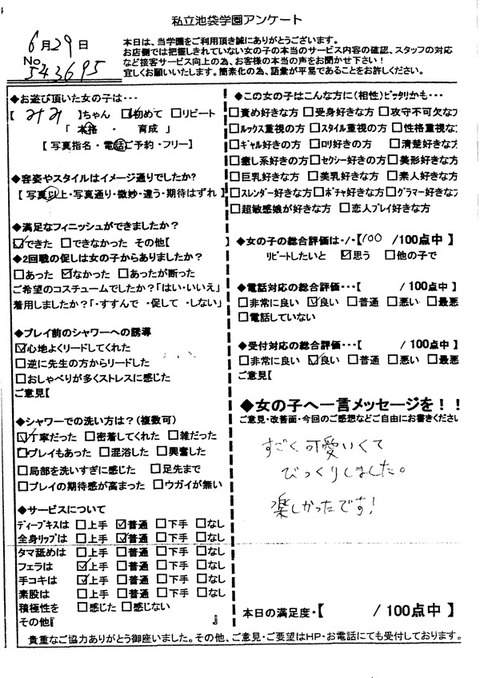 私立池袋学園アンケート
6月29日
No 543695
本日は、当学園をご利用頂き誠にありがとうございます。
お店側では把握しきれていない女の子の本当のサービス内容の確認、スタッフの対応
など接客サービス向上の為、お客様の本当の声をお聞かせ下さい!
宜しくお願いいたします。簡素化の為、語彙が平易であることをお許しください。
◆お遊び頂いた女の子は・・・
【 みみ 】ちゃん ☑初めて □リピート
「 本格 ・ 育成 」
【 写真指名・電話ご予約・フリー】
◆容姿やスタイルはイメージ通りでしたか?
【 写真以上・写真通り・微妙・違う・期待はずれ 】
◆満足なフィニッシュができましたか?
☑できた □できなかった その他【
◆2回戦の促しは女の子からありましたか?
□あった ☑なかった □あったが断った
ご希望のコスチュームでしたか?「はい・いいえ」
着用しましたか?「・すすんで ・促して ・しない」
◆プレイ前のシャワーへの誘導
☑心地よくリードしてくれた
□逆に先生の方からリードした
□おしゃべりが多くストレスに感じた
ご意見【
◆シャワーでの洗い方は?(複数可)
☑丁寧だった □密着してくれた □雑だった
□プレイもあった □混浴した □興奮した
□局部を洗いすぎに感じた □足先まで
□プレイの期待感が高まった □ウガイが無い
◆サービスについて
ディープキスは □上手 ☑普通 □下手 □なし
全身リップは □上手 ☑普通 □下手 □なし
タマ舐めは □上手 □普通 □下手 □なし
フェラは ☑上手 □普通 □下手 □なし
手コキは ☑上手 □普通 □下手 □なし
素股は □上手 □普通 □下手 □なし
積極性を □感じた □感じない
その他『 』
◆この女の子はこんな方に(相性)ピッタリかも・・・
□責め好きな方 □受身好きな方 □攻守不可欠な方
□ルックス重視の方 □スタイル重視の方 □性格重視な
□ギャル好きの方 □ロリ好きの方 □清楚好きな
□癒し系好きの方 □セクシー好きの方 □美形好きな
□巨乳好きな方 □美乳好きな方 □素人好きな
□スレンダー好きな方 □ポチャ好きな方 □グラマー好きな
□超敏感娘が好きな方 □恋人プレイ好きな方
◆女の子の総合評価は・・・【 100 /100点中 】
リピートしたいと ☑思う □他の子で
◆電話対応の総合評価・・・【 /100点中 】
□非常に良い ☑良い □普通 □悪い □最悪
□電話していない
◆受付対応の総合評価・・・【 /100点中 】
□非常に良い ☑良い □普通 □悪い □最悪
ご意見【
◆女の子へ一言メッセージを!!
ご意見・改善面・今回のご感想などご自由にお書きください
すごく可愛いくて
びっくりしました。
楽しかったです!
本日の満足度・【 /100点中 】
貴重なご協力ありがとう御座いました。その他、ご意見・ご要望はHP・お電話にても受付しております。